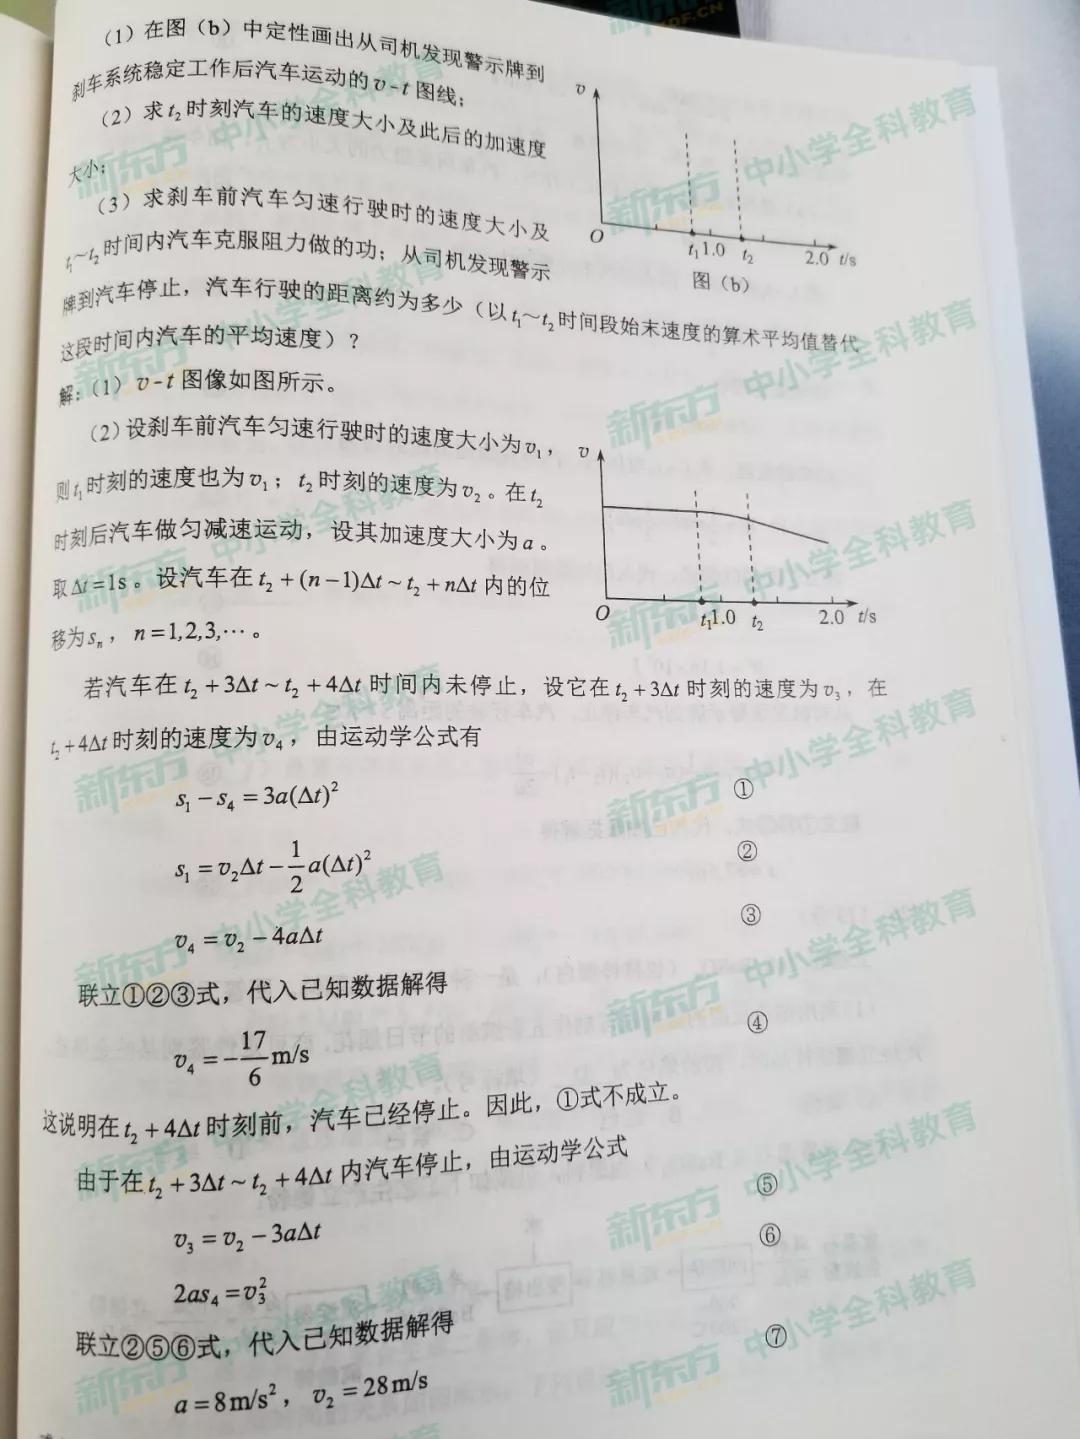 (1)在图(b)中定性画出从司机发现警示牌到
刹车系统稳定工作后汽车运动的v-t图线;
(2)求t₂时刻汽车的速度大小及此后的加速度
大小;
(3)求刹车前汽车匀速行驶时的速度大小及
t₁~t₂时间内汽车克服阻力做的功;从司机发现警示
牌到汽车停止,汽车行驶的距离约为多少(以t₁~t₂时间段始末速度的算术平均值替代
这段时间内汽车的平均速度)?
v
O
t₁ 1.0 t₂ 2.0 t/s
图(b)
解:(1)v-t图像如图所示。
(2)设刹车前汽车匀速行驶时的速度大小为v₁,
则t₁时刻的速度也为v₁;t₂时刻的速度为v₂。在t₂
时刻后汽车做匀减速运动,设其加速度大小为a。
取Δt=1s。设汽车在t₂+(n-1)Δt~t₂+nΔt内的位
移为sₙ,n=1,2,3,…。
v
O
t₁ 1.0 t₂ 2.0 t/s
若汽车在t₂+3Δt~t₂+4Δt时间内未停止,设它在t₂+3Δt时刻的速度为v₃,在
t₂+4Δt时刻的速度为v₄,由运动学公式有
s₁-s₄=3a(Δt)² ①
s₁=v₂Δt-1/2a(Δt)² ②
v₄=v₂-4aΔt ③
联立①②③式,代入已知数据解得
v₄=-17/6 m/s ④
这说明在t₂+4Δt时刻前,汽车已经停止。因此,①式不成立。
由于在t₂+3Δt~t₂+4Δt内汽车停止,由运动学公式
v₃=v₂-3aΔt ⑤
2as₄=v₃² ⑥
联立②⑤⑥式,代入已知数据解得
a=8m/s²,v₂=28m/s ⑦
新东方 中小学全科教育